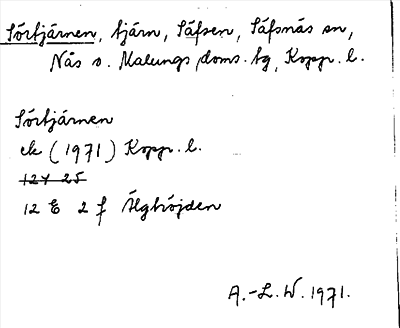 Sörtjärnen, tjärn, Säfsen, Säfsnäs sn,
Nås o. Malungs doms. tg, Kopp. l.
Sörtjärnen
ek (1971) Kopp. l.
12Y 25
12 E 2 f Älghöjden
A.-L. W. 1971.